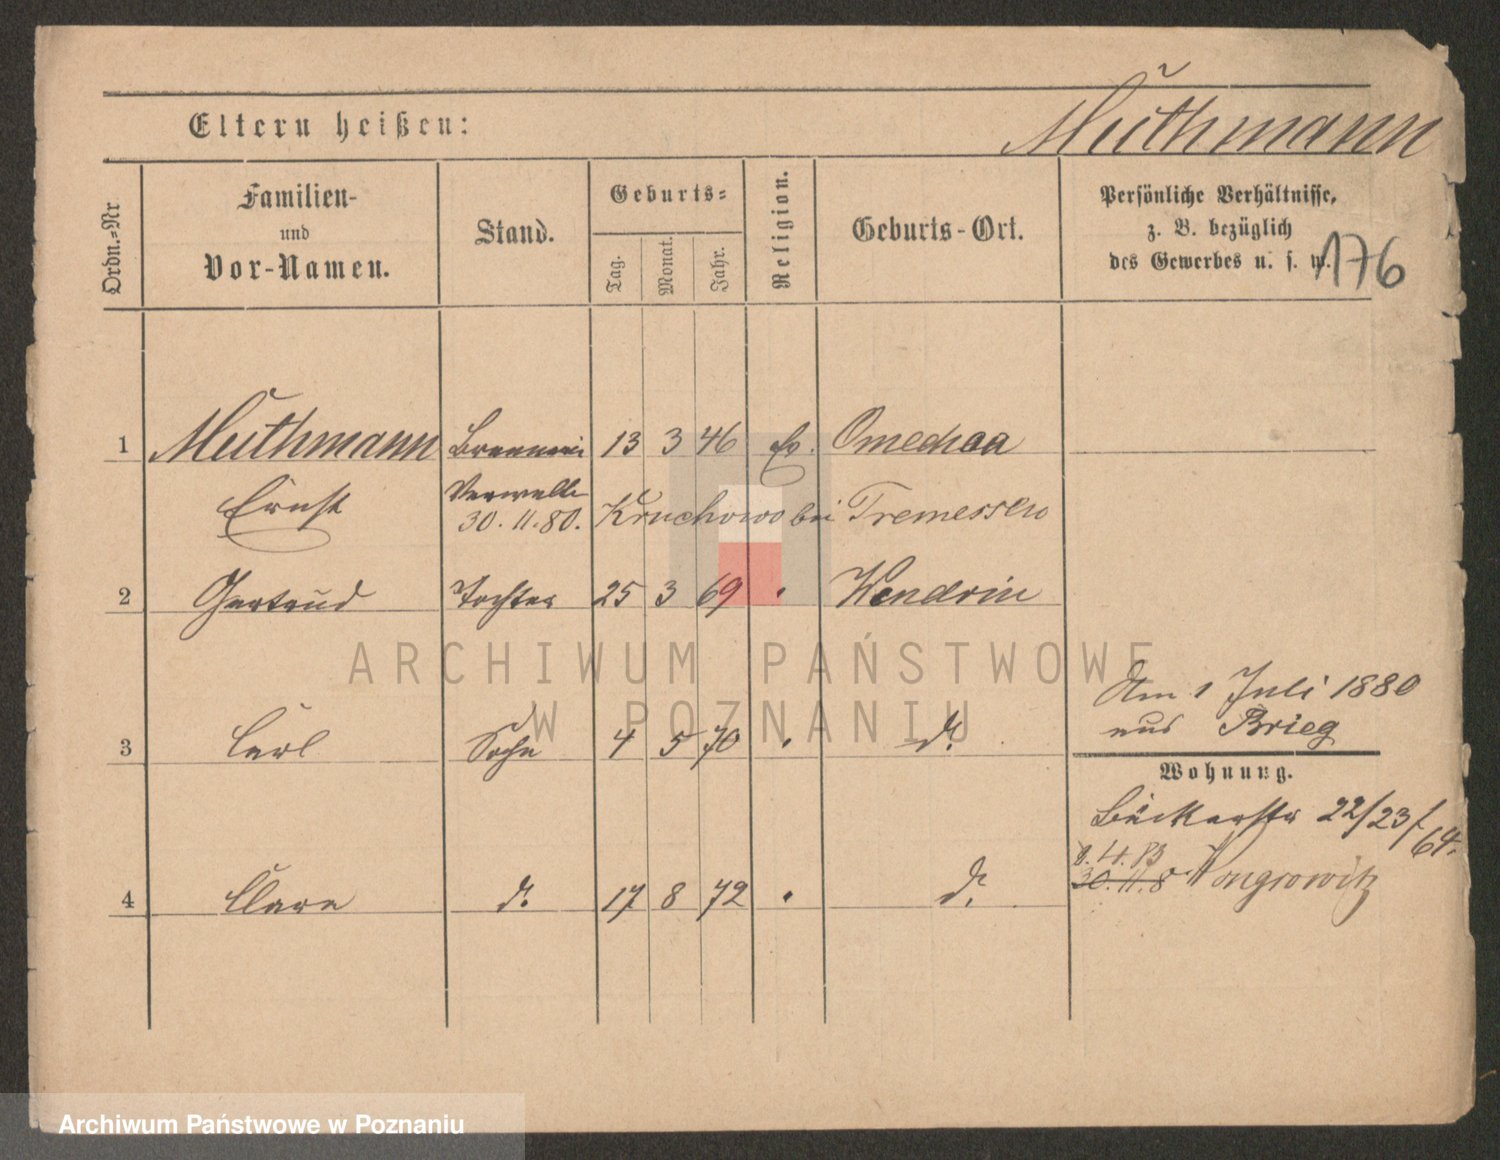 Eltern heißen:
Muthmann
Ordn.-Nr
Familien-
und
Vor-Namen.
Stand.
Geburts-
Tag.
Monat.
Jahr.
Religion.
Geburts-Ort.
Persönliche Verhältnisse,
z. B. bezüglich
des Gewerbes u. s. w.
176
1 Muthmann Brennerei 13 3 46 Ev.
Ernst Verwalter
30.11.80. Kruchowo bei Tremessen
2 Gertrud Tochter 25 3 69 " Wendrin
Am 1 Juli 1880
aus Brieg
3 Carl Sohn 4 5 70 " d.
Wohnung.
Bäckerstr 22/23/
64.
8.11.83
30.11.8 Wongrowitz
4 Clara d. 17 8 72 " d.
ARCHIWUM PAŃSTWOWE
W POZNANIU
Archiwum Państwowe w Poznaniu